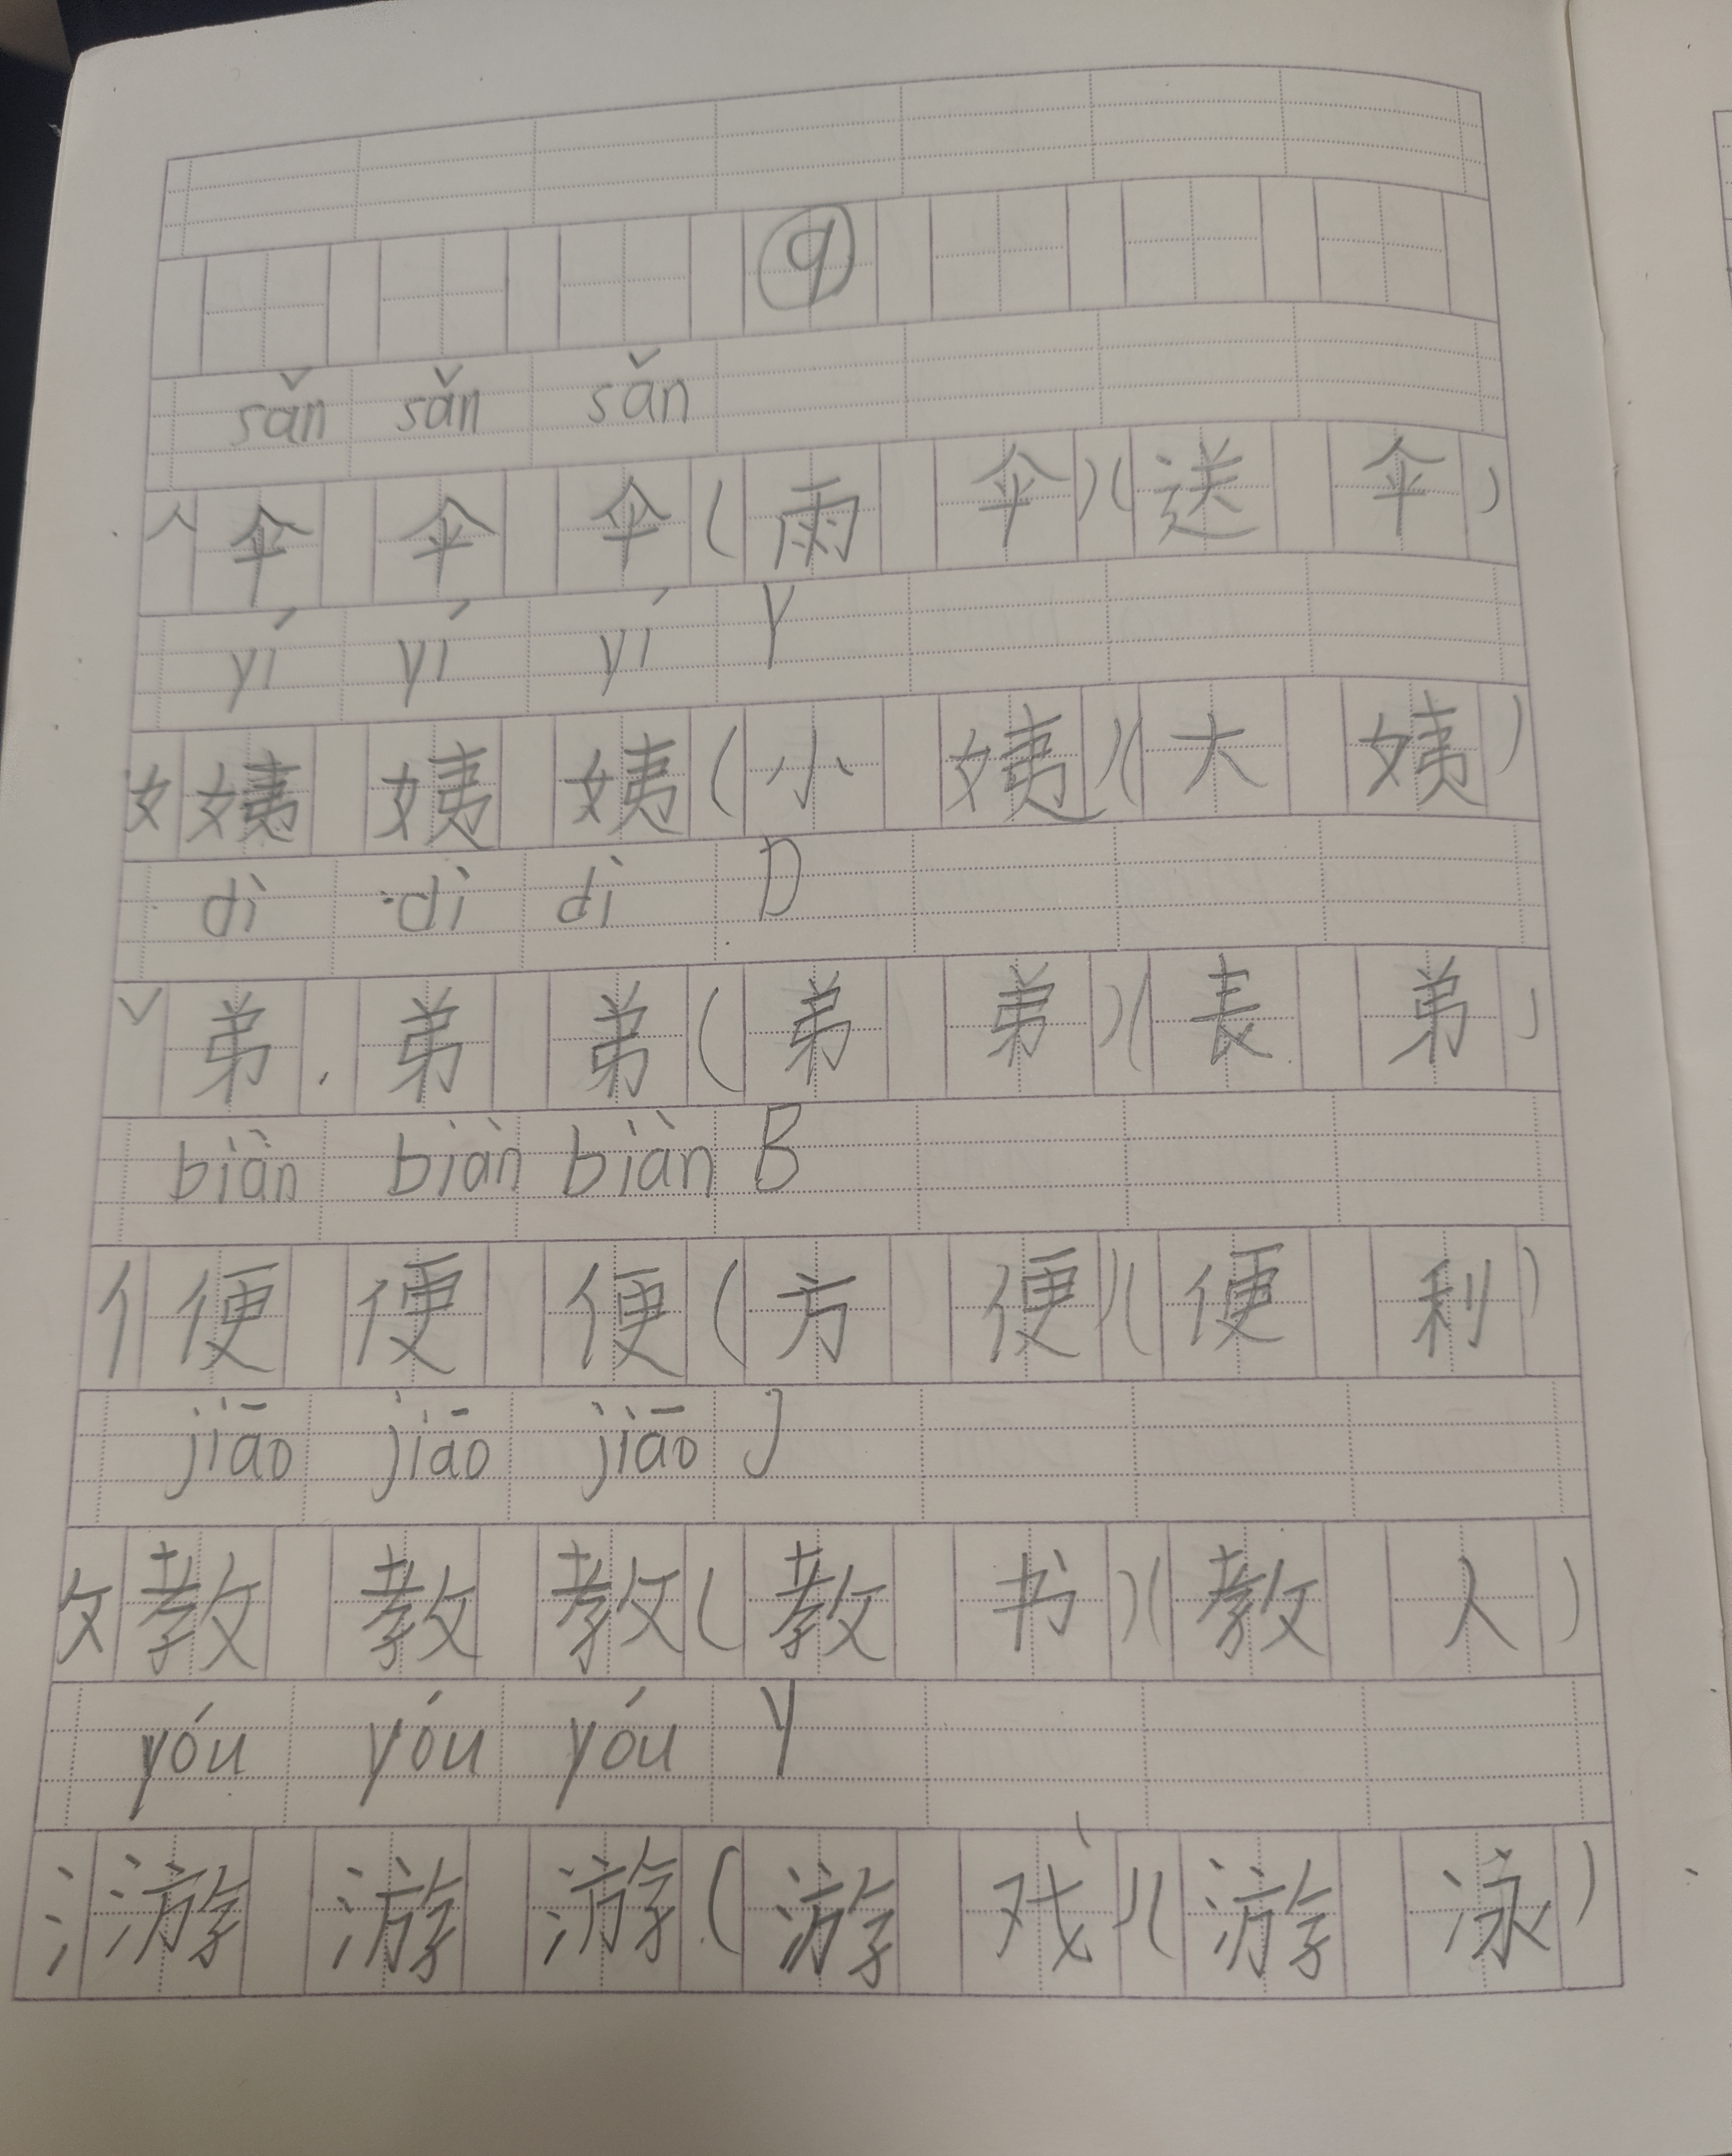 ⑨
sǎn sǎn sǎn
人 伞 伞 伞 ( 雨 伞 ) ( 送 伞 )
yí yí yí Y
女 姨 姨 姨 ( 小 姨 ) ( 大 姨 )
dì dì dì D
丷 弟 弟 弟 ( 弟 弟 ) ( 表 弟 )
biàn biàn biàn B
亻 便 便 便 ( 方 便 ) ( 便 利 )
jiāo jiāo jiāo J
攵 教 教 教 ( 教 书 ) ( 教 人 )
yóu yóu yóu Y
氵 游 游 游 ( 游 戏 ) ( 游 泳 )